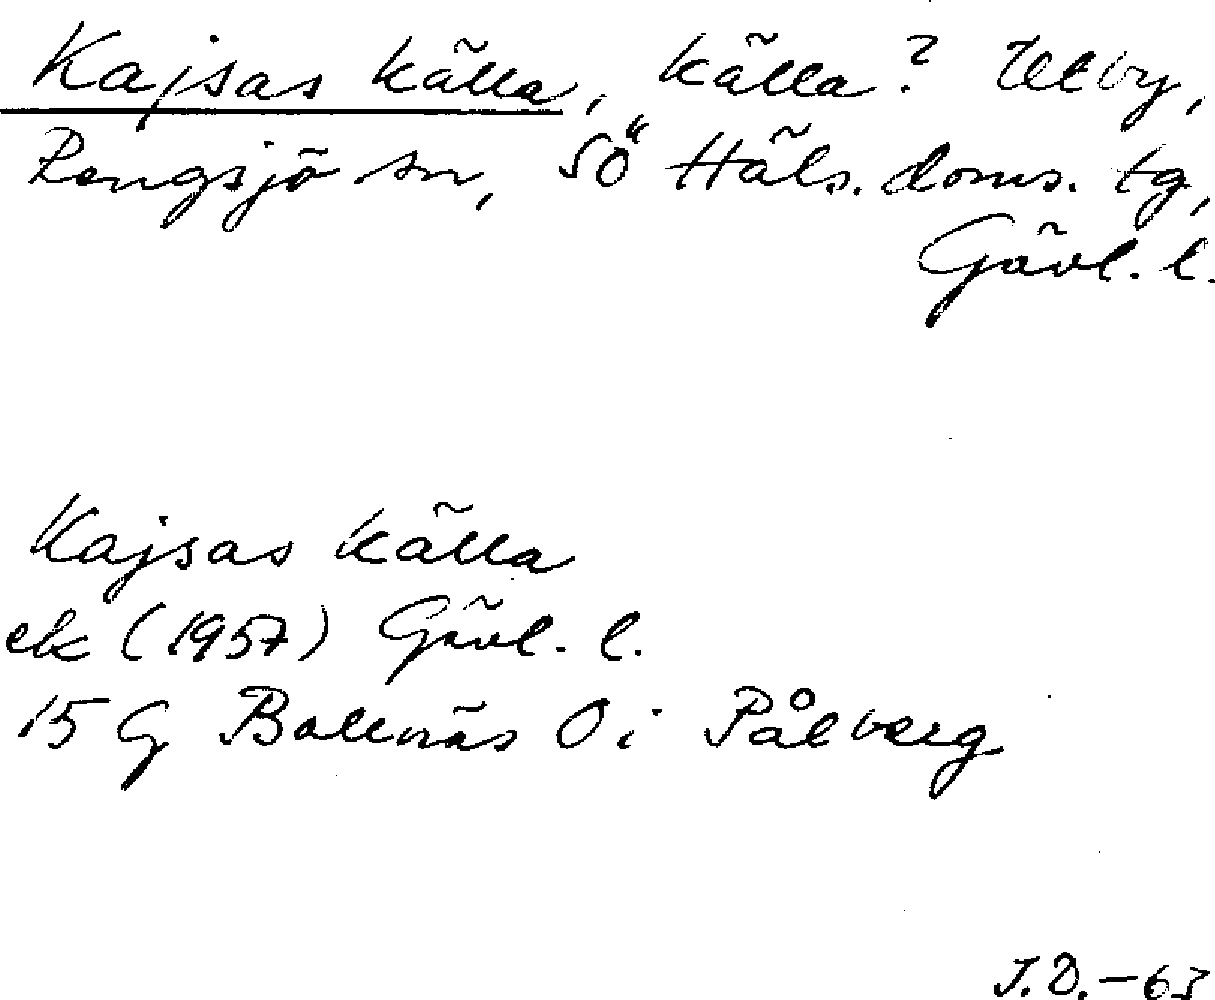 Kajsas källa, källa? Utby,
Rengsjö sn, SÖ Häls. doms. tg,
Gävl. l.
Kajsas källa
ek (1957) Gävl. l.
15 G Bollnäs 0 i Pålberg
J.D.-63